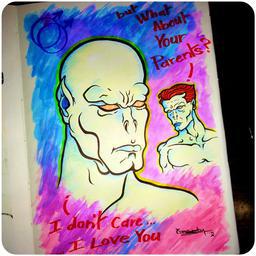 but What
About
Your
Parents?
I don't Care...
I Love You